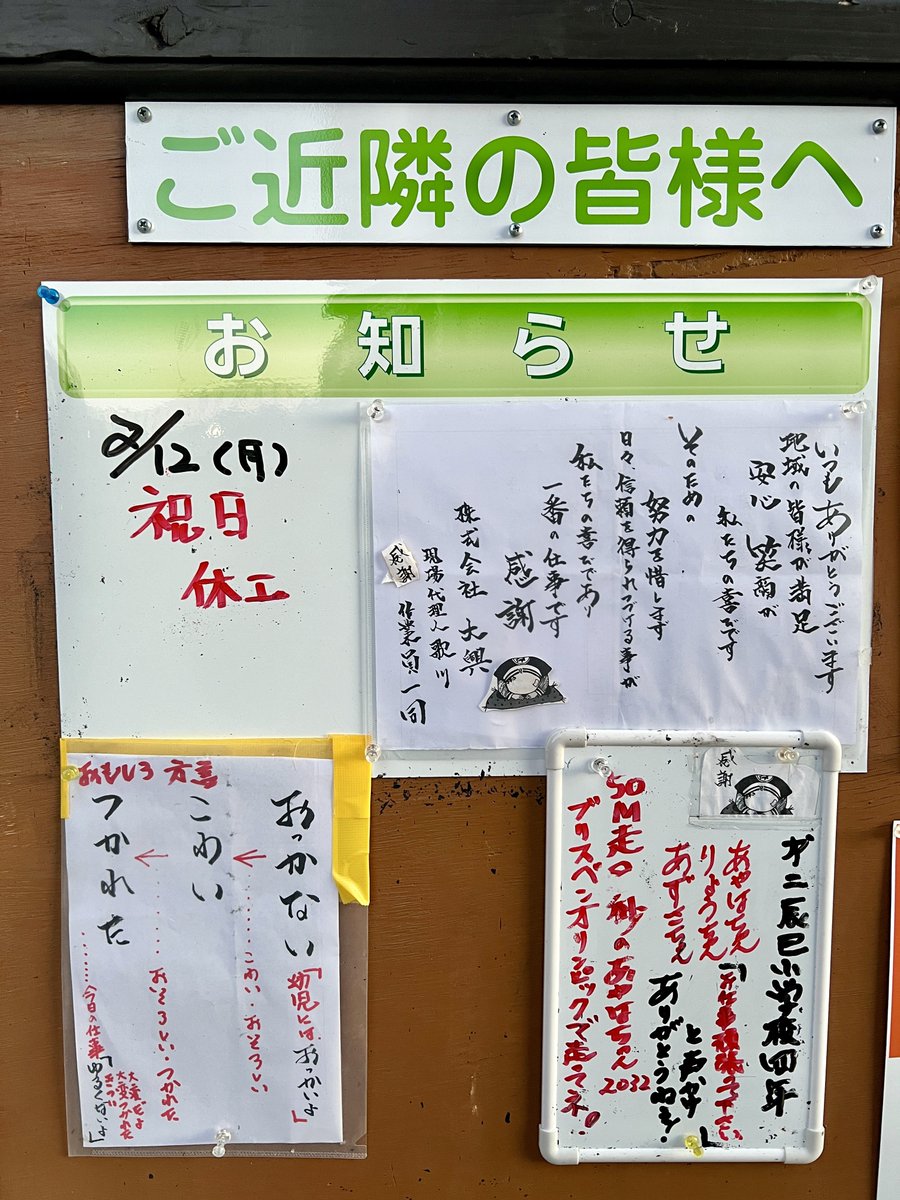 ご近隣の皆様へ
お知らせ
2/12(月)
祝日
休工
いつもありがとうございます
地域の皆様が満足
安心 笑顔が
私たちの喜びです
そのための
努力を惜します
日々、信頼を得られつづける事が
私たちの喜びであり
一番の仕事です
感謝
株式会社 大興
現場代理人 歌川
作業員一同
感謝
おもしろ方言
おっかない「幼児には、おっかいよ」
こわい・・・・・こわい・おそろしい
つかれた・・・・・おそろしい・つかれた
・・・・・・今日の仕事「ゆるくないよ」
大変だよ
大変つかれた
きつい
感謝
才二辰巳小学校四年
あやはちゃん
りょうちゃん
あずさちゃん
「お仕事頑張って下さい」
と声かけ
ありがとうネ!
50M走〇秒のあやはちゃん
2032
ブリスベンオリンピックで走ってネ!